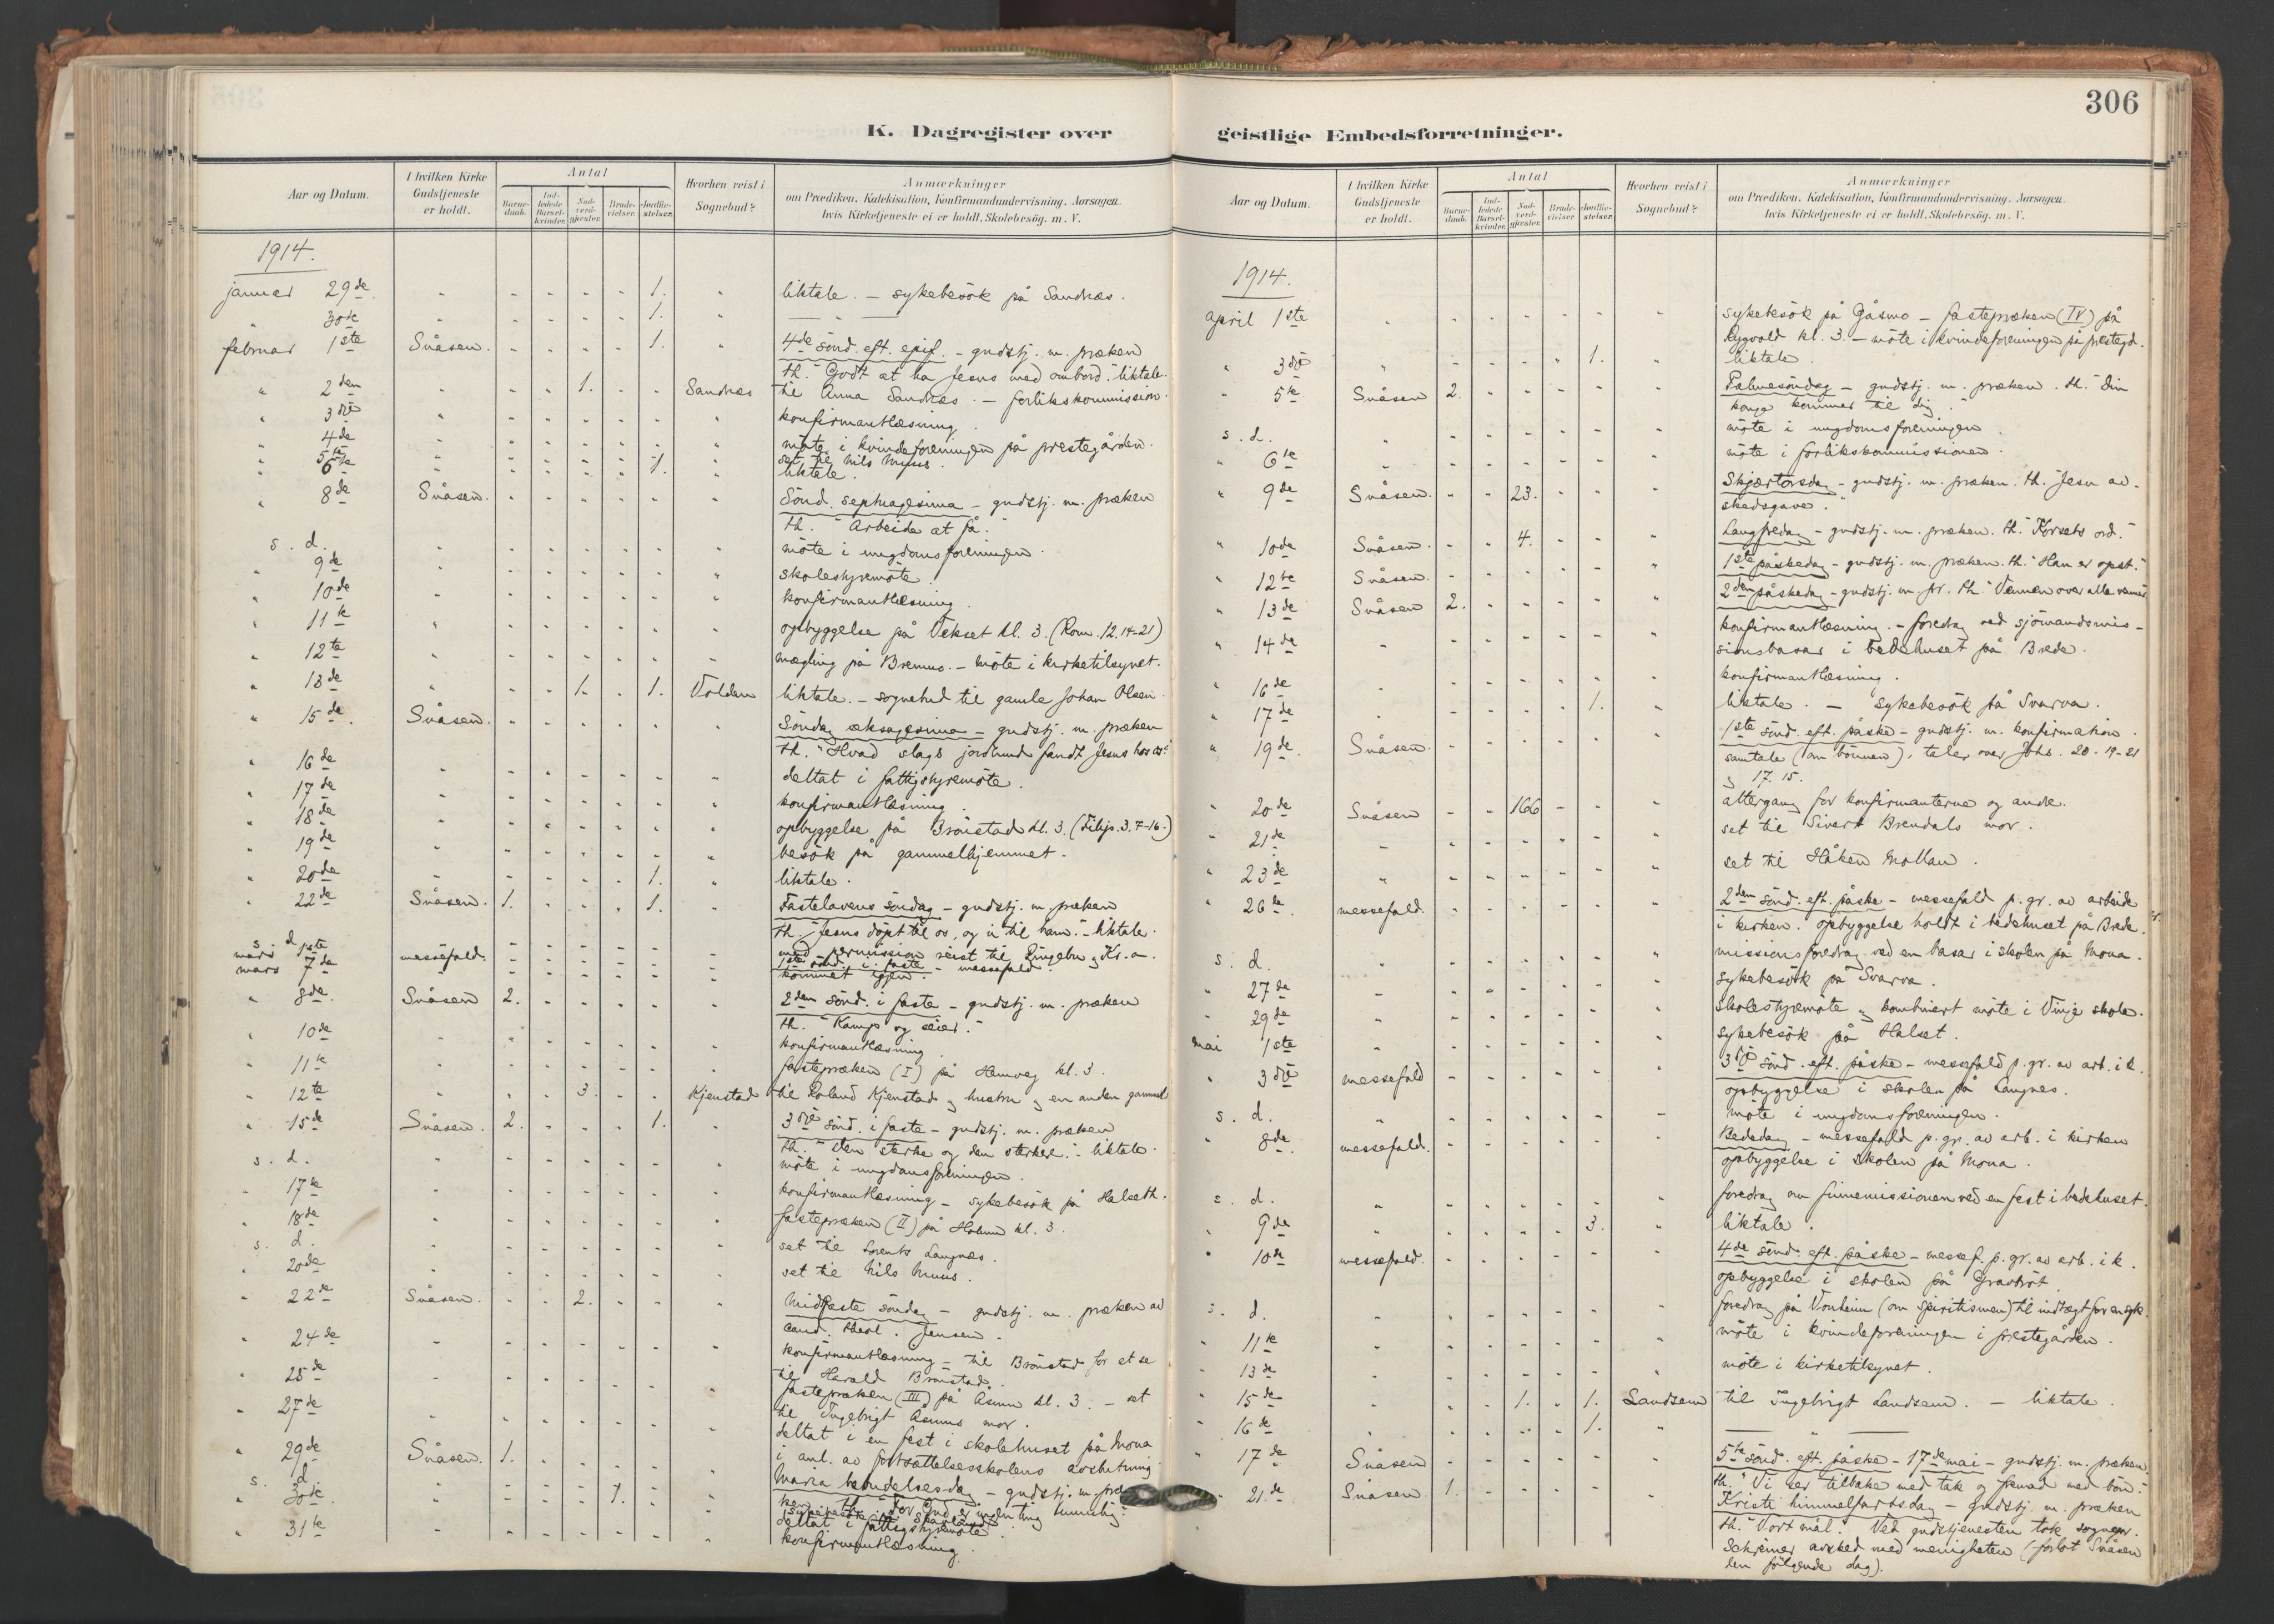 306
K. Dagregister over
geistlige Embedsforretninger.
Aar og Datum.
I hvilken Kirke Gudstjeneste er holdt.
Antal
Barne-daab.
Ind-ledede Barsel-kvinder.
Nad-verd-gjester.
Brude-vielser.
Jordfæ-stelser.
Hvorhen reist i Sognebud?
Anmærkninger
om Prædiken, Katekisation, Konfirmandundervisning, Aarsagen,
hvis Kirketjeneste ei er holdt, Skolebesög, m. V.
1914.
januar 29de " - - - - - 1. " liktale. – sykebesök på Sandnes.
" 30te " - - - - - 1. " — " —
februar 1ste Snåsen. - - - - - 1. " 4de sönd. eft. epif. – gudstj. m. præken
th. "Godt at ha Jesus med ombord." liktale.
" 2den " - - 1. - - Sandnes til Anna Sandnes. – forlikskommission.
" 3die " konfirmantlæsning.
" 4de " möte i kvindeforeningen på prestegården.
" 5te " set til Nils Muus.
" 6te " - - - - 1. " liktale.
" 8de Snåsen. - - - - - " Sönd. septuagesima – gudstj. m. præken
th. "Arbeide at få."
s. d. " möte i ungdomsforeningen.
" 9de " skolestyremöte.
" 10de " konfirmantlæsning.
" 11te " opbyggelse på Vekset kl. 3. (Rom. 12.14-21)
" 12te " mægling på Bremno. – möte i kirketilsynet.
" 13de " - - 1. - 1. Volden liktale. – sognebud til gamle Johan Olsen.
" 15de. Snåsen. - - - - - " Söndag seksagesima – gudstj. m. præken
th. "Hvad slags jordbund fandt Jesus hos os?"
" 16de " deltat i fattigstyremöte.
" 17de " konfirmantlæsning.
" 18de " opbyggelse på Brönstad kl. 3. (Filip. 3. 7-16.)
" 19de " besök på gammelhjemmet.
" 20de " - - - - 1. " liktale.
" 22de Snåsen. 1. - - - 1. " Fastelavens söndag – gudstj. m. præken
th. "Jesus döpt til os, og vi til ham." – liktale.
s. d. med permission reist til Ringebu og Kr.a.
mars 1ste messefald. 1ste sönd. i faste – messefald.
mars 7de " kommet igjen.
" 8de. Snåsen 2. - - - - " 2den sönd. i faste – gudstj. m. præken
th. "Kamp og seier."
" 10de " konfirmantlæsning.
" 11te " fastepræken (I) på Hemveg kl. 3.
" 12te " - - 3. - - Kjenstad til Roland Kjenstad og hustru og en anden gammel
" 15de Snåsen. 2. - - - 1. " 3die sönd. i faste – gudstj. m. præken
th. "Den sterke og den sterkere." – liktale.
s. d. " möte i ungdomsforeningen.
" 17te " konfirmantlæsning – sykebesök på Halseth.
" 18de " fastepræken (II) på Holum kl. 3.
s. d. " set til Lorents Langnæs.
" 20de " set til Nils Muus.
" 22de Snåsen. - - 2. - - " Midfaste söndag – gudstj. m. præken av
cand. theol. Jensen.
" 24de " konfirmantlæsning – til Brönstad for at se
til Harald Brönstad.
" 25de " fastepræken (III) på Åsum kl. 3. – set
til Ingebrigt Åsums mor.
" 27de " deltat i en fest i skolehuset på Mona
i anl. av fortsættelsesskolens avslutning.
" 29de Snåsen. 1. - - - - " Maria budskapsdag – gudstj. m. præ
ken th. "For Gud er ingen ting umulig."
s. d. " - - - 1. - "
" 30te " deltat i fattigstyremöte.
" 31te " konfirmantlæsning.
Aar og Datum.
I hvilken Kirke Gudstjeneste er holdt.
Antal
Barne-daab.
Ind-ledede Barsel-kvinder.
Nad-verd-gjester.
Brude-vielser.
Jordfæ-stelser.
Hvorhen reist i Sognebud?
Anmærkninger
om Prædiken, Katekisation, Konfirmandundervisning, Aarsagen,
hvis Kirketjeneste ei er holdt, Skolebesög, m. V.
1914.
april 1ste " sykebesök på Gåsmo – fastepræken (IV) på
Rygvold kl. 3. – möte i kvindeforeningen på prestegd.
" 3die " - - - - 1. " liktale.
" 5te Snåsen 2. - - - - " Palmesöndag – gudstj. m. præken. th. "Din
konge kommer til dig."
s. d. " möte i ungdomsforeningen.
" 6te " möte i forlikskommissionen.
" 9de Snåsen. - - 23. - - " Skjærtorsdag – gudstj. m. præken. th. "Jesu av-
skedsgave."
" 10de Snåsen. - - 4. - - " Langfredag – gudstj. m. præken. th. "Korsets ord."
" 12te Snåsen. - - - - - " 1ste påskedag – gudstj. m. præken. th. "Han er opst."
" 13de Snåsen 2. - - - - " 2den påskedag – gudstj. m. pr. th. "Vennen over alle venner"
" 14de " konfirmantlæsning. – foredrag ved sjömandsmis-
sionsbasar i bedehuset på Brede.
" 16de " konfirmantlæsning.
" 17de " - - - - 1. " liktale. – sykebesök på Svarva.
" 19de. Snåsen. - - - - - " 1ste sönd. eft. påske – gudstj. m. konfirmation.
samtale (om bönnen), taler over Johs. 20. 19-21
og 17. 15.
" 20de Snåsen - - 166 - - " altergang for konfirmanterne og andre.
" 21de " set til Sivert Brendals mor.
" 23de " set til Håken Mollan.
" 26de. messefald. 2den sönd. eft. påske – messefald p. gr. av arbeide
i kirken. opbyggelse holdt i bedehuset på Brede.
s. d. " missionsforedrag ved en basar i skolen på Mona.
" 27de " sykebesök på Svarva.
" 29de " skolestyremöte og kombinert möte i Vinje skole.
mai 1ste " sykebesök på Halset.
" 3die messefald 3die sönd. eft. påske – messefald p. gr. av arb. i k.
opbyggelse i skolen på Langnes.
s. d. " möte i ungdomsforeningen.
" 8de. messefald. Bededag – messefald p. gr. av arb. i kirken
opbyggelse i skolen på Mona.
s. d. " foredrag om finnemissionen ved en fest i bedehuset.
" 9de " - - - - 3. " liktale.
" 10de messefald. 4de sönd. eft. påske – messef. p. gr. av arb. i k.
opbyggelse i skolen på
s. d. " foredrag på Vonheim (om spiritismen) til indtægt for
" 11te " möte i kvindeforeningen i prestegården.
" 13de " möte i kirketilsynet.
" 15de " - - 1. - 1. Landsem til Ingebrigt Landsem. – liktale.
" 16de " - - - - 1. " — " —
" 17de Snåsen 5te sönd. eft. påske – 17de mai – gudstj. m. præken.
th. "Vi ser tilbake med tak og fremad med bön."
" 21de. Snåsen. 1. - - - - " Kristi himmelfartsdag – gudstj. m. præken
th. "Vort mål." Ved gudstjenesten tok sognepr.
Schreiner avsked med menigheten (forlot Snåsen
den fölgende dag).